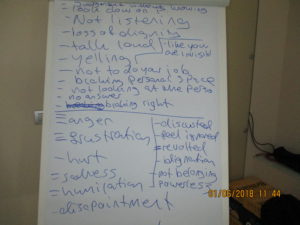 = look down on
- Not listening
- loss of dignity
- talk loud - like you
are invisible
- yelling
- not to do your job
- bloking personal space
- not looking at the perso
- no answer
bloking sight
= anger
= frustration
- hurt
= sadness
= humiliation
- disapointment
- discusted
- feel ignored
= revolted
- indignation
- not belonging
- Powerless
01/06/2018 11:44